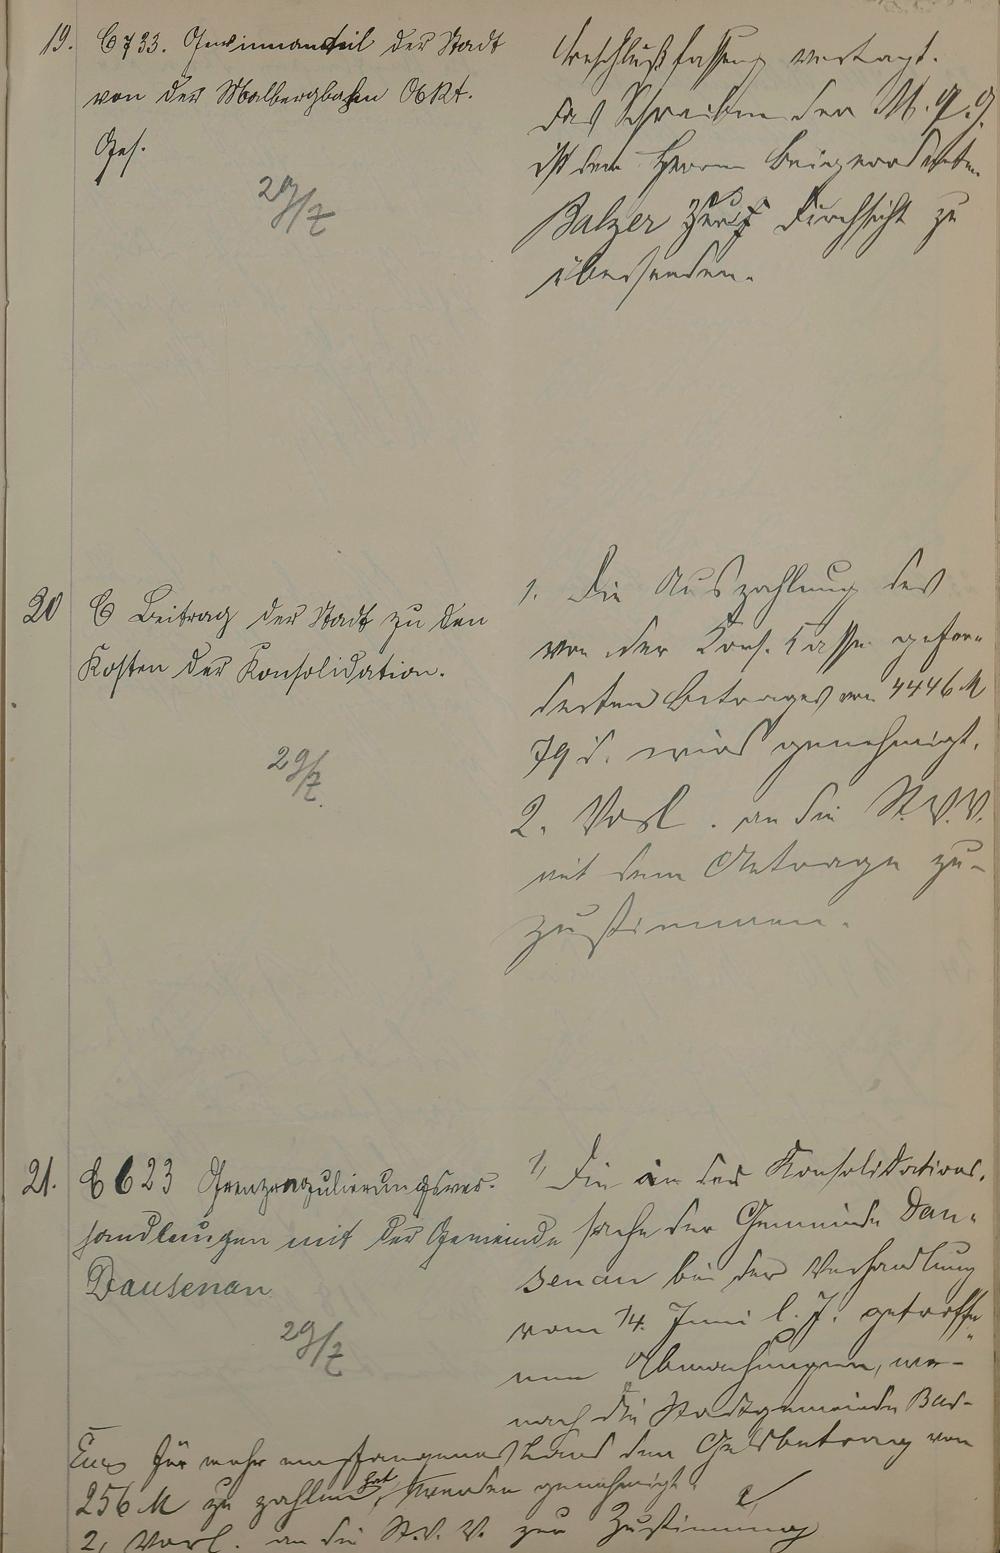 19. C 733. Gewinnanteil der Stadt
von der Malbergbahn Akt.
Ges.
29/7
Beschlußfassung vertagt.
Das Schreiben der M. A. G.
ist dem Herrn Beigeordneten
Balzer zur Durchsicht zu
übersenden.
20 C Beitrag der Stadt zu den
Kosten der Konsolidation.
29/7
1. Die Auszahlung des
von der Kons. Kasse gefor-
derten Beitrages von 4446 M
79 d. wird genehmigt.
2. Vorl. an die St. V. V.
mit dem Antrage zu-
zustimmen.
21. C 623 Grenzregulierungsver-
handlungen mit der Gemeinde
Dausenau
29/7
1, Die in der Konsolidations-
sache der Gemeinde Dau-
senau bei der Verhandlung
vom 14. Juni l. J. getroffe-
nen Abmachungen, wo-
nach die Stadtgemeinde Bad-
Ems für mehr empfangenes Land den Geldbetrag von
256 M zu zahlen hat, werden genehmigt.
2, Vorl. an die St. V. V. zur Zustimmung